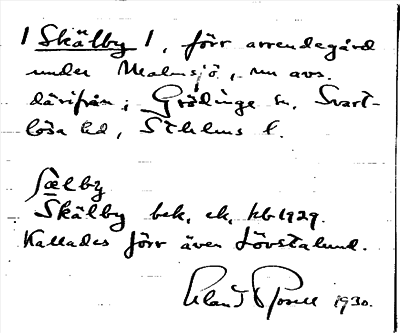 / Skälby /, förr arrendegård
under Malmsjö, nu avs.
därifrån; Grödinge sn, Svart-
lösa hd, Sthlms l.
Sælby
Skälby bek, ek, hb 1929.
Kallades förr även Lövstalund.
1930.